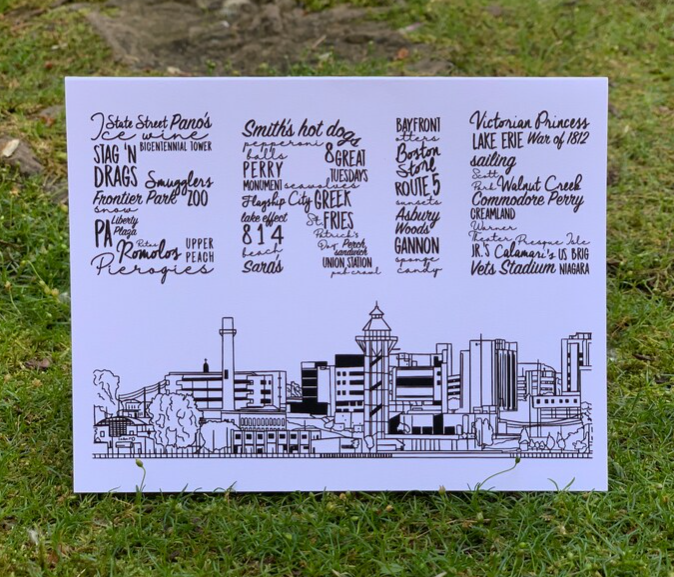 State Street Pano's
Ice wine
BICENTENNIAL TOWER
STAG 'N
DRAGS
Smugglers
Frontier Park ZOO
snow
PA Liberty
Plaza
Romolos
UPPER
PEACH
Pierogies
Smith's hot dogs
pepperoni
balls
PERRY
MONUMENT seawolves
Flagship City
lake effect
814
beach
Sara's
8 GREAT
TUESDAYS
GREEK
FRIES
St.
Patrick's
Day
Perch
sandwich
UNION STATION
pub crawl
BAYFRONT
otters
Boston
Store
ROUTE 5
sunsets
Asbury
Woods
GANNON
sponge
candy
Victorian Princess
LAKE ERIE War of 1812
sailing
Scott
Park Walnut Creek
Commodore Perry
CREAMLAND
Warner
Theater Presque Isle
JR.'S Calamari's US BRIG
Vets Stadium NIAGARA